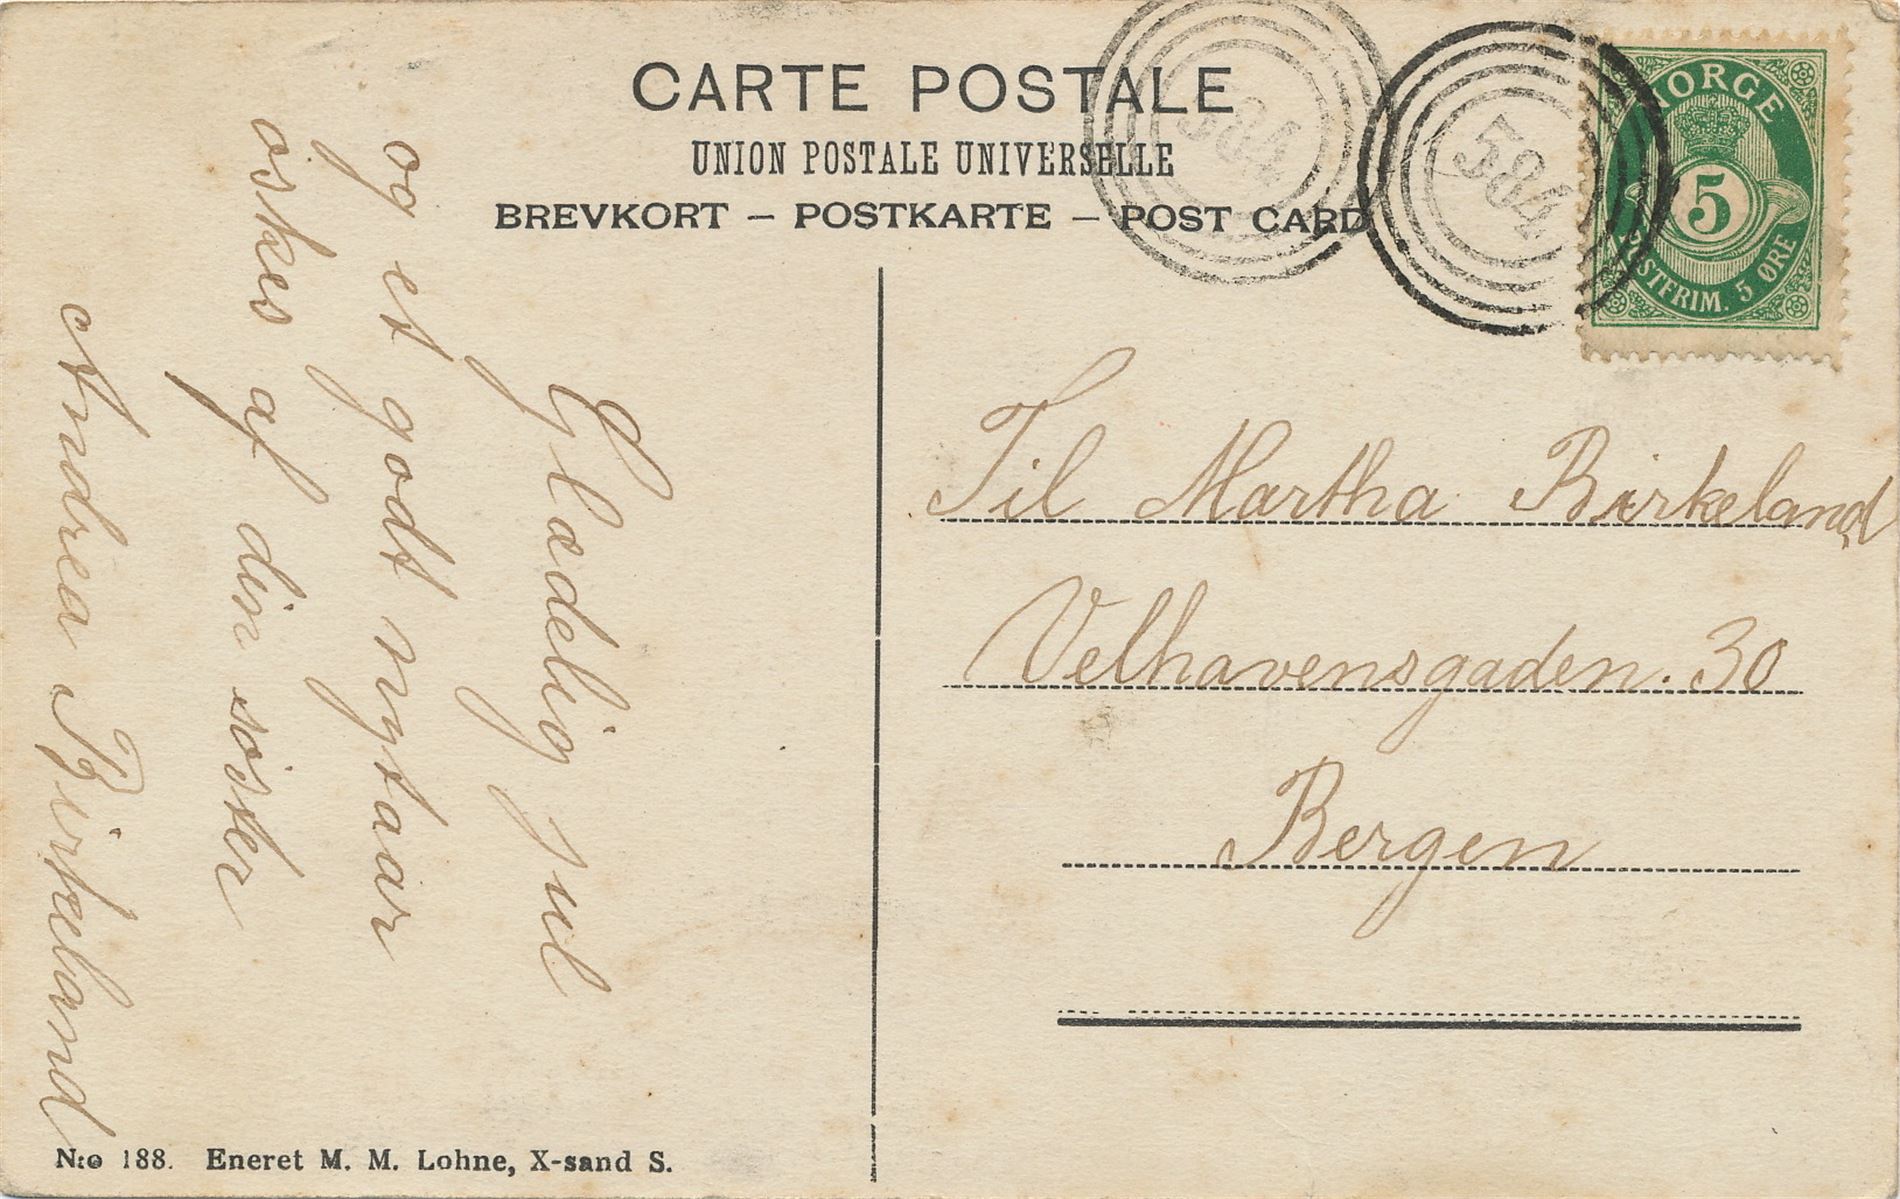 CARTE POSTALE
UNION POSTALE UNIVERSELLE
BREVKORT – POSTKARTE – POST CARD
584
584
NORGE
5
POSTFRIM. 5 ØRE
Glædelig jul
og et godt nytaar
øskes af din søster
Andrea Birkeland
Til Martha Birkeland
Velhavensgaden. 30
Bergen
N:o 188. Eneret M. M. Lohne, X-sand S.